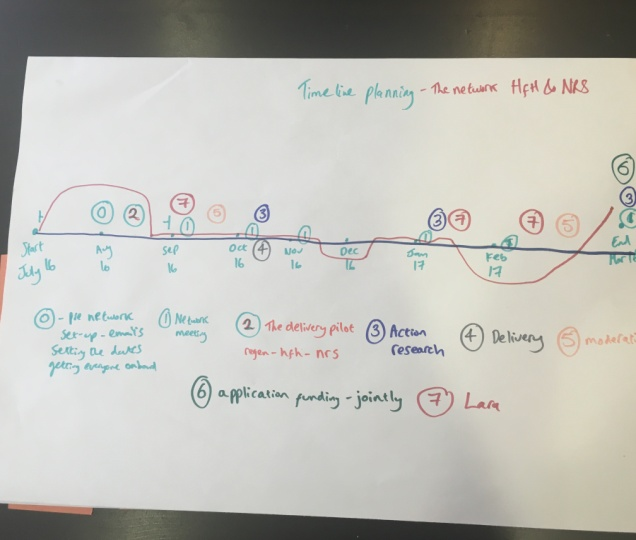 Timeline planning - The network HfH & NRS
6
0 2 7 1 5 1 3 1 3 7 7 5 3
4 1 1 1
Start Aug Sep Oct Nov Dec Jan Feb End
July 16 16 16 16 16 16 17 17
0 - Pre network
set-up - emails
setting the dates
getting everyone onboard
1 Network
meeting
2 The delivery pilot
regen - hfh - nrs
3 Action
research
4 Delivery
5 moderati
6 application funding - jointly
7 Lara